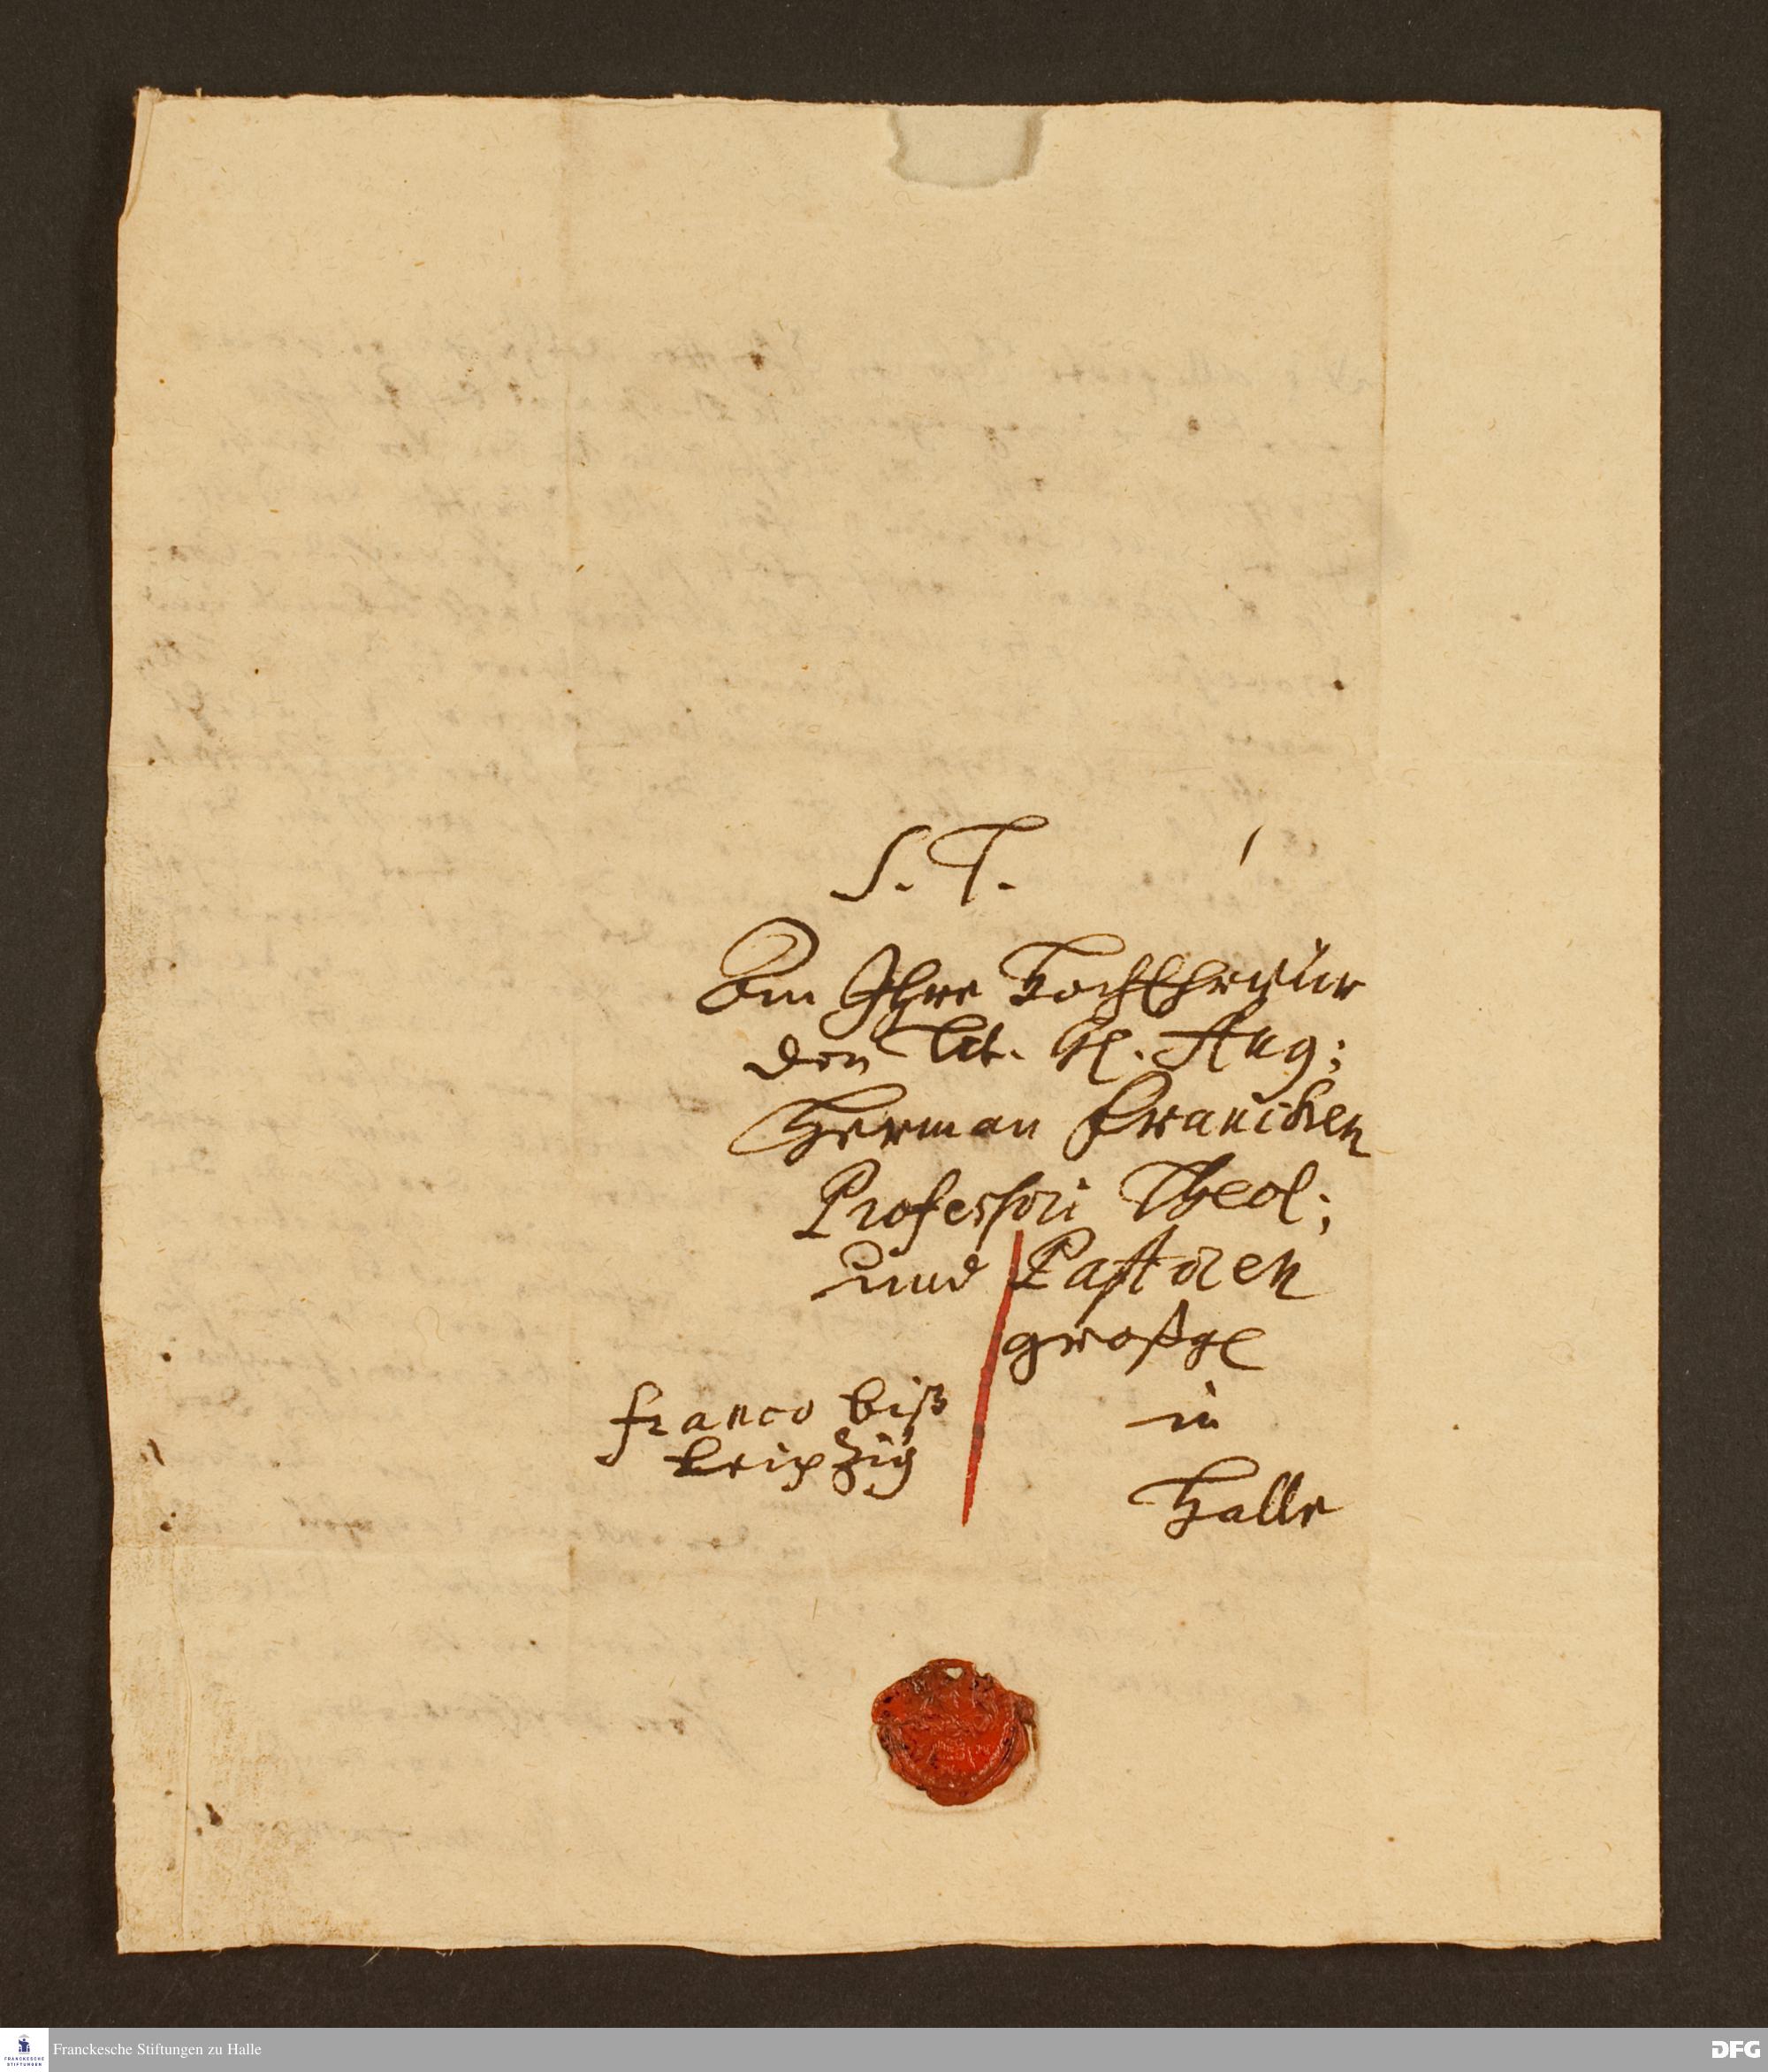 S. T.
An Ihre HochEhrwür
den Tit. H. Aug:
Herman Francken
Professori Theol:
und Pastoren
großge
in
Halle
franco biß
Leipzig
Franckesche Stiftungen zu Halle
FRANCKESCHE
STIFTUNGEN
DFG